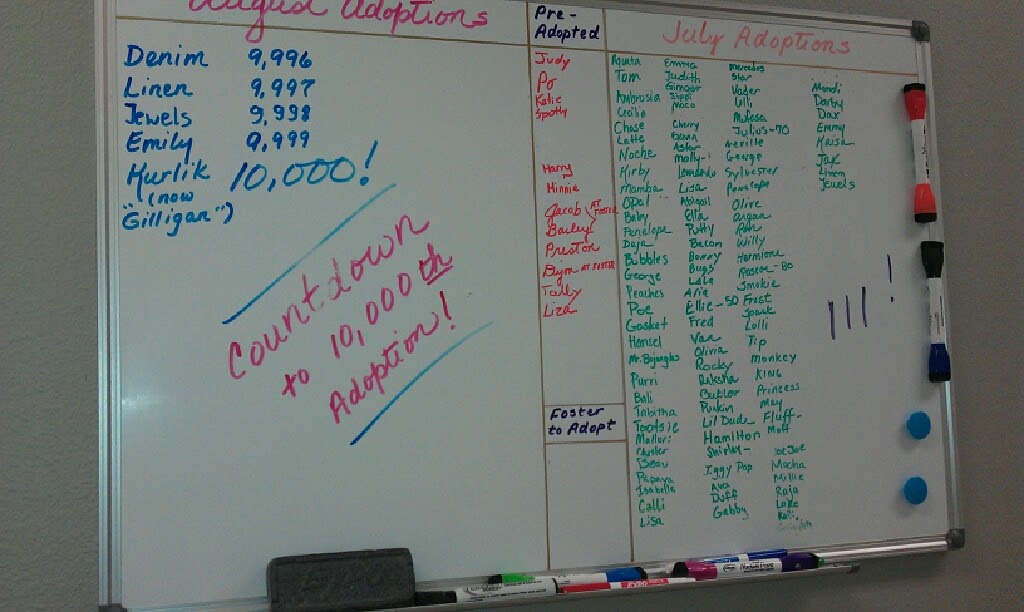 August Adoptions
Denim 9,996
Linen 9,997
Jewels 9,998
Emily 9,999
Kurlik 10,000!
(now
"Gilligan")
Countdown
to 10,000th
Adoption!
Pre-
Adopted
Judy
Po
Katie
Spotty
Harry
Minnie
Jacob AT FOSTER
Bailey
Preston
AT FOSTER
Tally
Liza
Foster
to Adopt
July Adoptions
Tom
Ambrosia
Cecilia
Chase
Latte
Noche
Kirby
Mamba
Opal
Baby
Penelope
Daja
Bubbles
George
Peaches
Poe
Gasket
Hensel
Mr. Bojangles
Purri
Bali
Tabitha
Tootsie
Mallori
Beau
Papaya
Isabella
Calli
Lisa
Emma
Judith
Ginger
Cherry
Molly-i
Leonardo
Lisa
Abigail
Ella
Patty
Bacon
Benny
Bugs
Aria
Ellie-50
Fred
Van
Olivia
Rocky
Butler
Punkin
Lil Dude
Hamilton
Shirley-
Iggy Pop
Ava
Duff
Gabby
Mercedes
Star
Vader
Ulli
Mufasa
Julius-70
Neville
George
Sylvester
Penelope
Olive
Willy
Hermione
Roscoe-80
Smokie
Frost
Lolli
Tip
Monkey
KING
Princess
May
Fluff-
Moff
Joe Joe
Mocha
Millie
Raja
Mandi
Darby
Dax
Emmy
Krisa
Jax
Linen
Jewels
111!